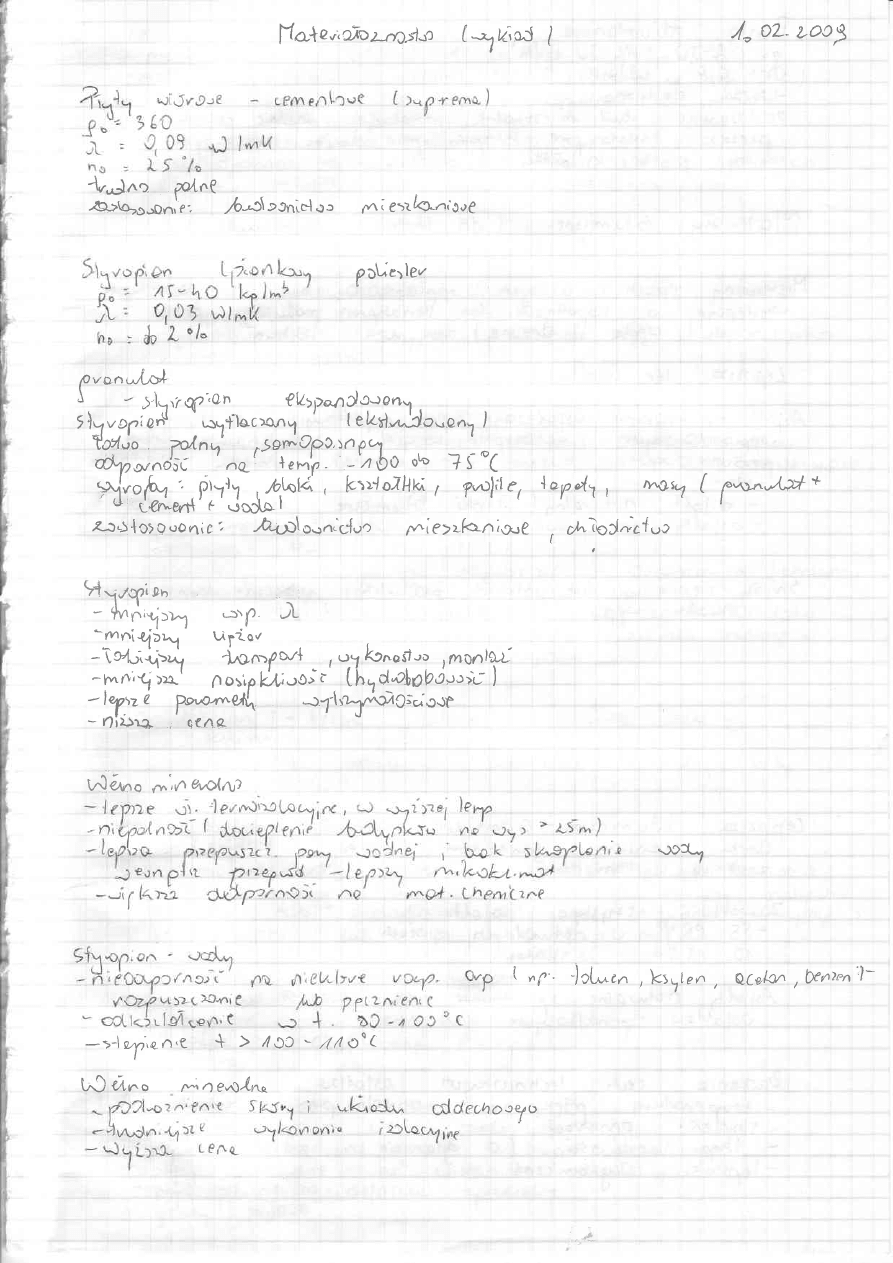 Materiałoznastwo (wykład) 1. 02. 2009
Płyty wiórowe - cementowe (suprema)
ρo = 360
λ = 0,09 W/mK
no = 25 %
- trudno palne
zastosowanie: budownictwo mieszkaniowe
Styropian (piankowy poliester
ρo = 15-40 kg/m³
λ = 0,03 W/mK
no = do 2 %
granulat
- styropian ekspandowany
styropian wytłaczany (ekstrudowany)
łatwo palny, samogasnący
odporność na temp. -100 do 75°C
wyroby: płyty, bloki, kształtki, profile, tapety, masy (granulat +
cement + woda)
zastosowanie: budownictwo mieszkaniowe, chłodnictwo
Styropian
- mniejszy wsp. λ
- mniejszy ciężar
- łatwiejszy transport, wykonastwo, montaż
- mniejsza nasiąkliwość (hydrobobowość)
- lepsze parametry wytrzymałościowe
- niższa cena
Wełna mineralna
- lepsze wł. termoizolacyjne, w wyższej temp
- niepalność (docieplenie budynków na wys > 25m)
- lepsza przepuszcz. pary wodnej i brak skroplenia wody
wewnątrz przegród - lepszy mikroklimat
- większa odporność na mat. chemiczne
Styropian - wady
- nieodporność na niektóre rozp. org (np. toluen, ksylen, aceton, benzen) -
rozpuszczanie lub pęcznienie
- odkształcenie w t. 80-100°C
- stopienie t > 100 - 110°C
Wełna mineralna
- podrażnienie skóry i układu oddechowego
- trudniejsze wykonania izolacyjne
- wyższa cena